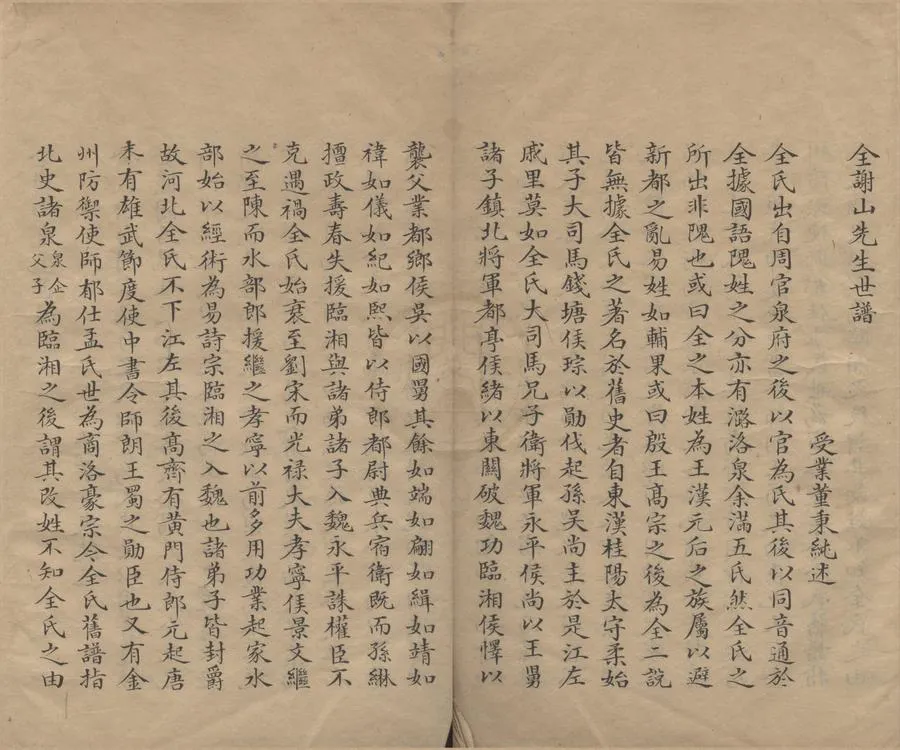 全謝山先生世譜
受業董秉純述
全氏出自周官泉府之後以官為氏其後以同音通於
全據國語隗姓之分亦有潞洛泉余滿五氏然全氏之
所出非隗也或曰全之本姓為王漢元后之族屬以避
新都之亂易姓如輔果或曰殷王高宗之後為全二說
皆無據全氏之著名於舊史者自東漢桂陽太守柔始
其子大司馬錢塘侯琮以勛伐起孫吳尚主於是江左
戚里莫如全氏大司馬兄子衛將軍永平侯尚以王舅
諸子鎮北將軍都亭侯緒以東關破魏功臨湘侯懌以
襲父業都鄉侯吳以國舅其餘如端如翩如緝如靖如
禕如儀如紀如熙皆以侍郎都尉典兵宿衛既而孫綝
擅政壽春失援臨湘與諸弟諸子入魏永平誅權臣不
克遇禍全氏始衰至劉宋而光祿大夫孝寧侯景文繼
之至陳而水部郎援繼之孝寧以前多用功業起家水
部始以經術為易詩宗臨湘之入魏也諸弟子皆封爵
故河北全氏不下江左其後高齊有黃門侍郎元起唐
末有雄武節度使中書令師朗王蜀之勛臣也又有金
州防禦使師郁仕孟氏世為商洛豪宗今全氏舊譜指
北史諸泉泉企父子為臨湘之後謂其改姓不知全氏之由